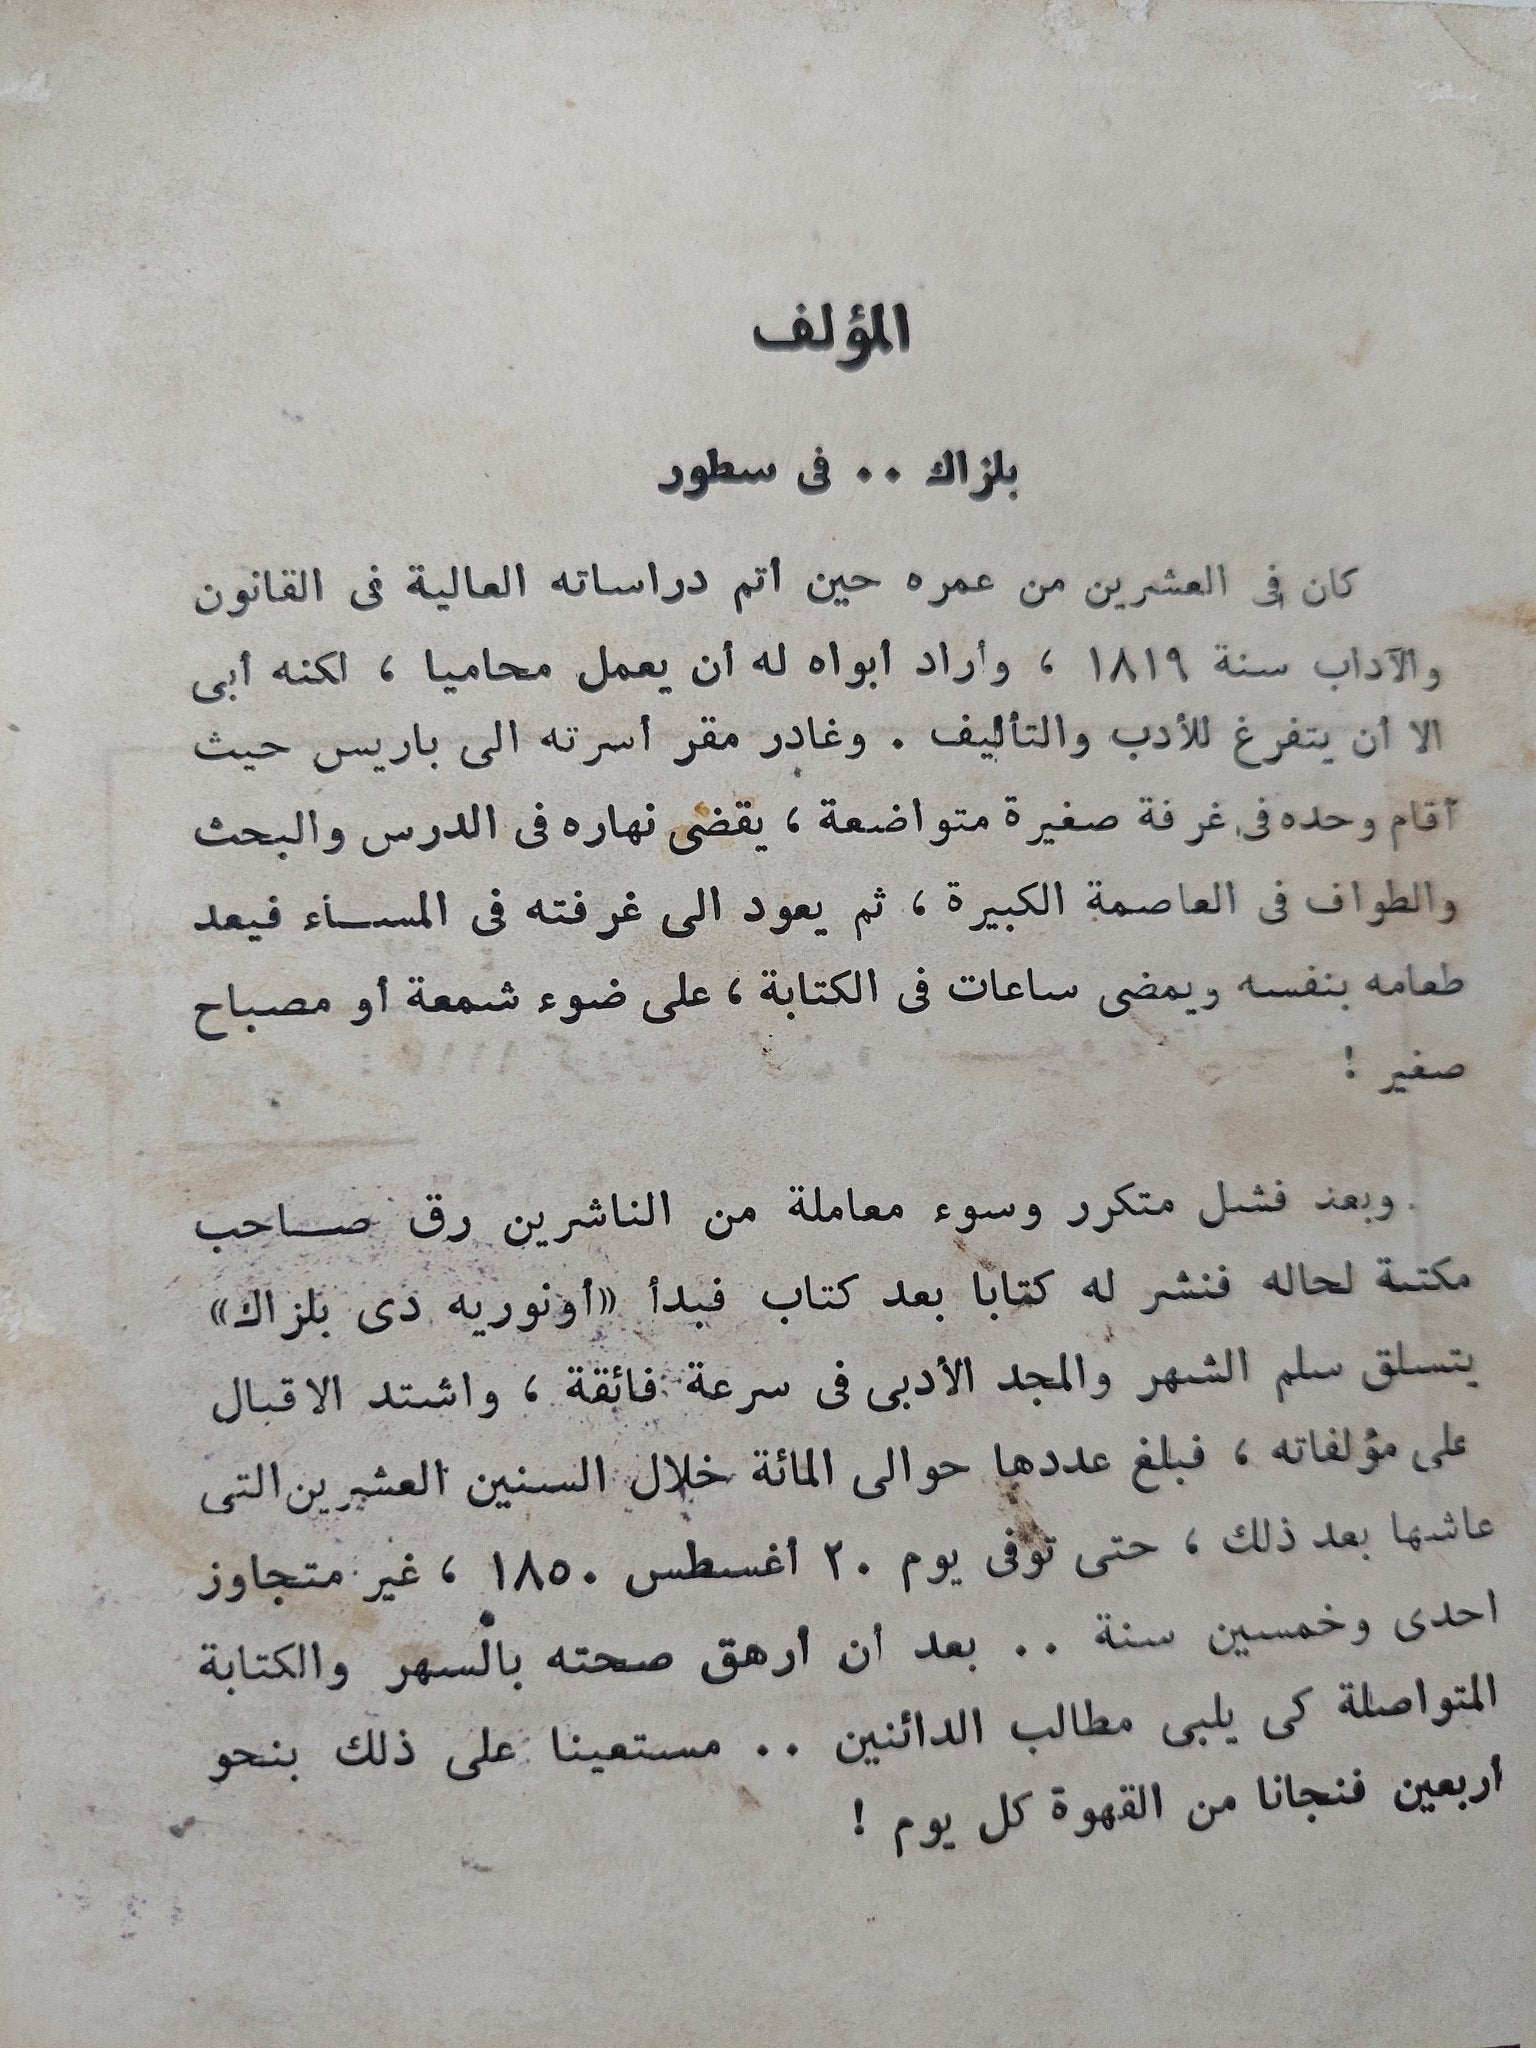 المؤلف
بلزاك ٠٠ فى سطور
كان فى العشرين من عمره حين أتم دراساته العالية فى القانون
والآداب سنة ١٨١٩ ، وأراد أبواه له أن يعمل محاميا ، لكنه أبى
الا أن يتفرغ للأدب والتأليف . وغادر مقر أسرته الى باريس حيث
أقام وحده فى غرفة صغيرة متواضعة ، يقضى نهاره فى الدرس والبحث
والطواف فى العاصمة الكبيرة ، ثم يعود الى غرفته فى المساء فيعد
طعامه بنفسه ويمضى ساعات فى الكتابة ، على ضوء شمعة أو مصباح
صغير !
وبعد فشل متكرر وسوء معاملة من الناشرين رق صاحب
مكتبة لحاله فنشر له كتابا بعد كتاب فبدأ «أونوريه دى بلزاك»
يتسلق سلم الشهر والمجد الأدبى فى سرعة فائقة ، واشتد الاقبال
على مؤلفاته ، فبلغ عددها حوالى المائة خلال السنين العشرين التى
عاشها بعد ذلك ، حتى توفى يوم ٢٠ أغسطس ١٨٥٠ ، غير متجاوز
احدى وخمسين سنة .. بعد أن أرهق صحته بالسهر والكتابة
المتواصلة كى يلبى مطالب الدائنين .. مستعينا على ذلك بنحو
أربعين فنجانا من القهوة كل يوم !